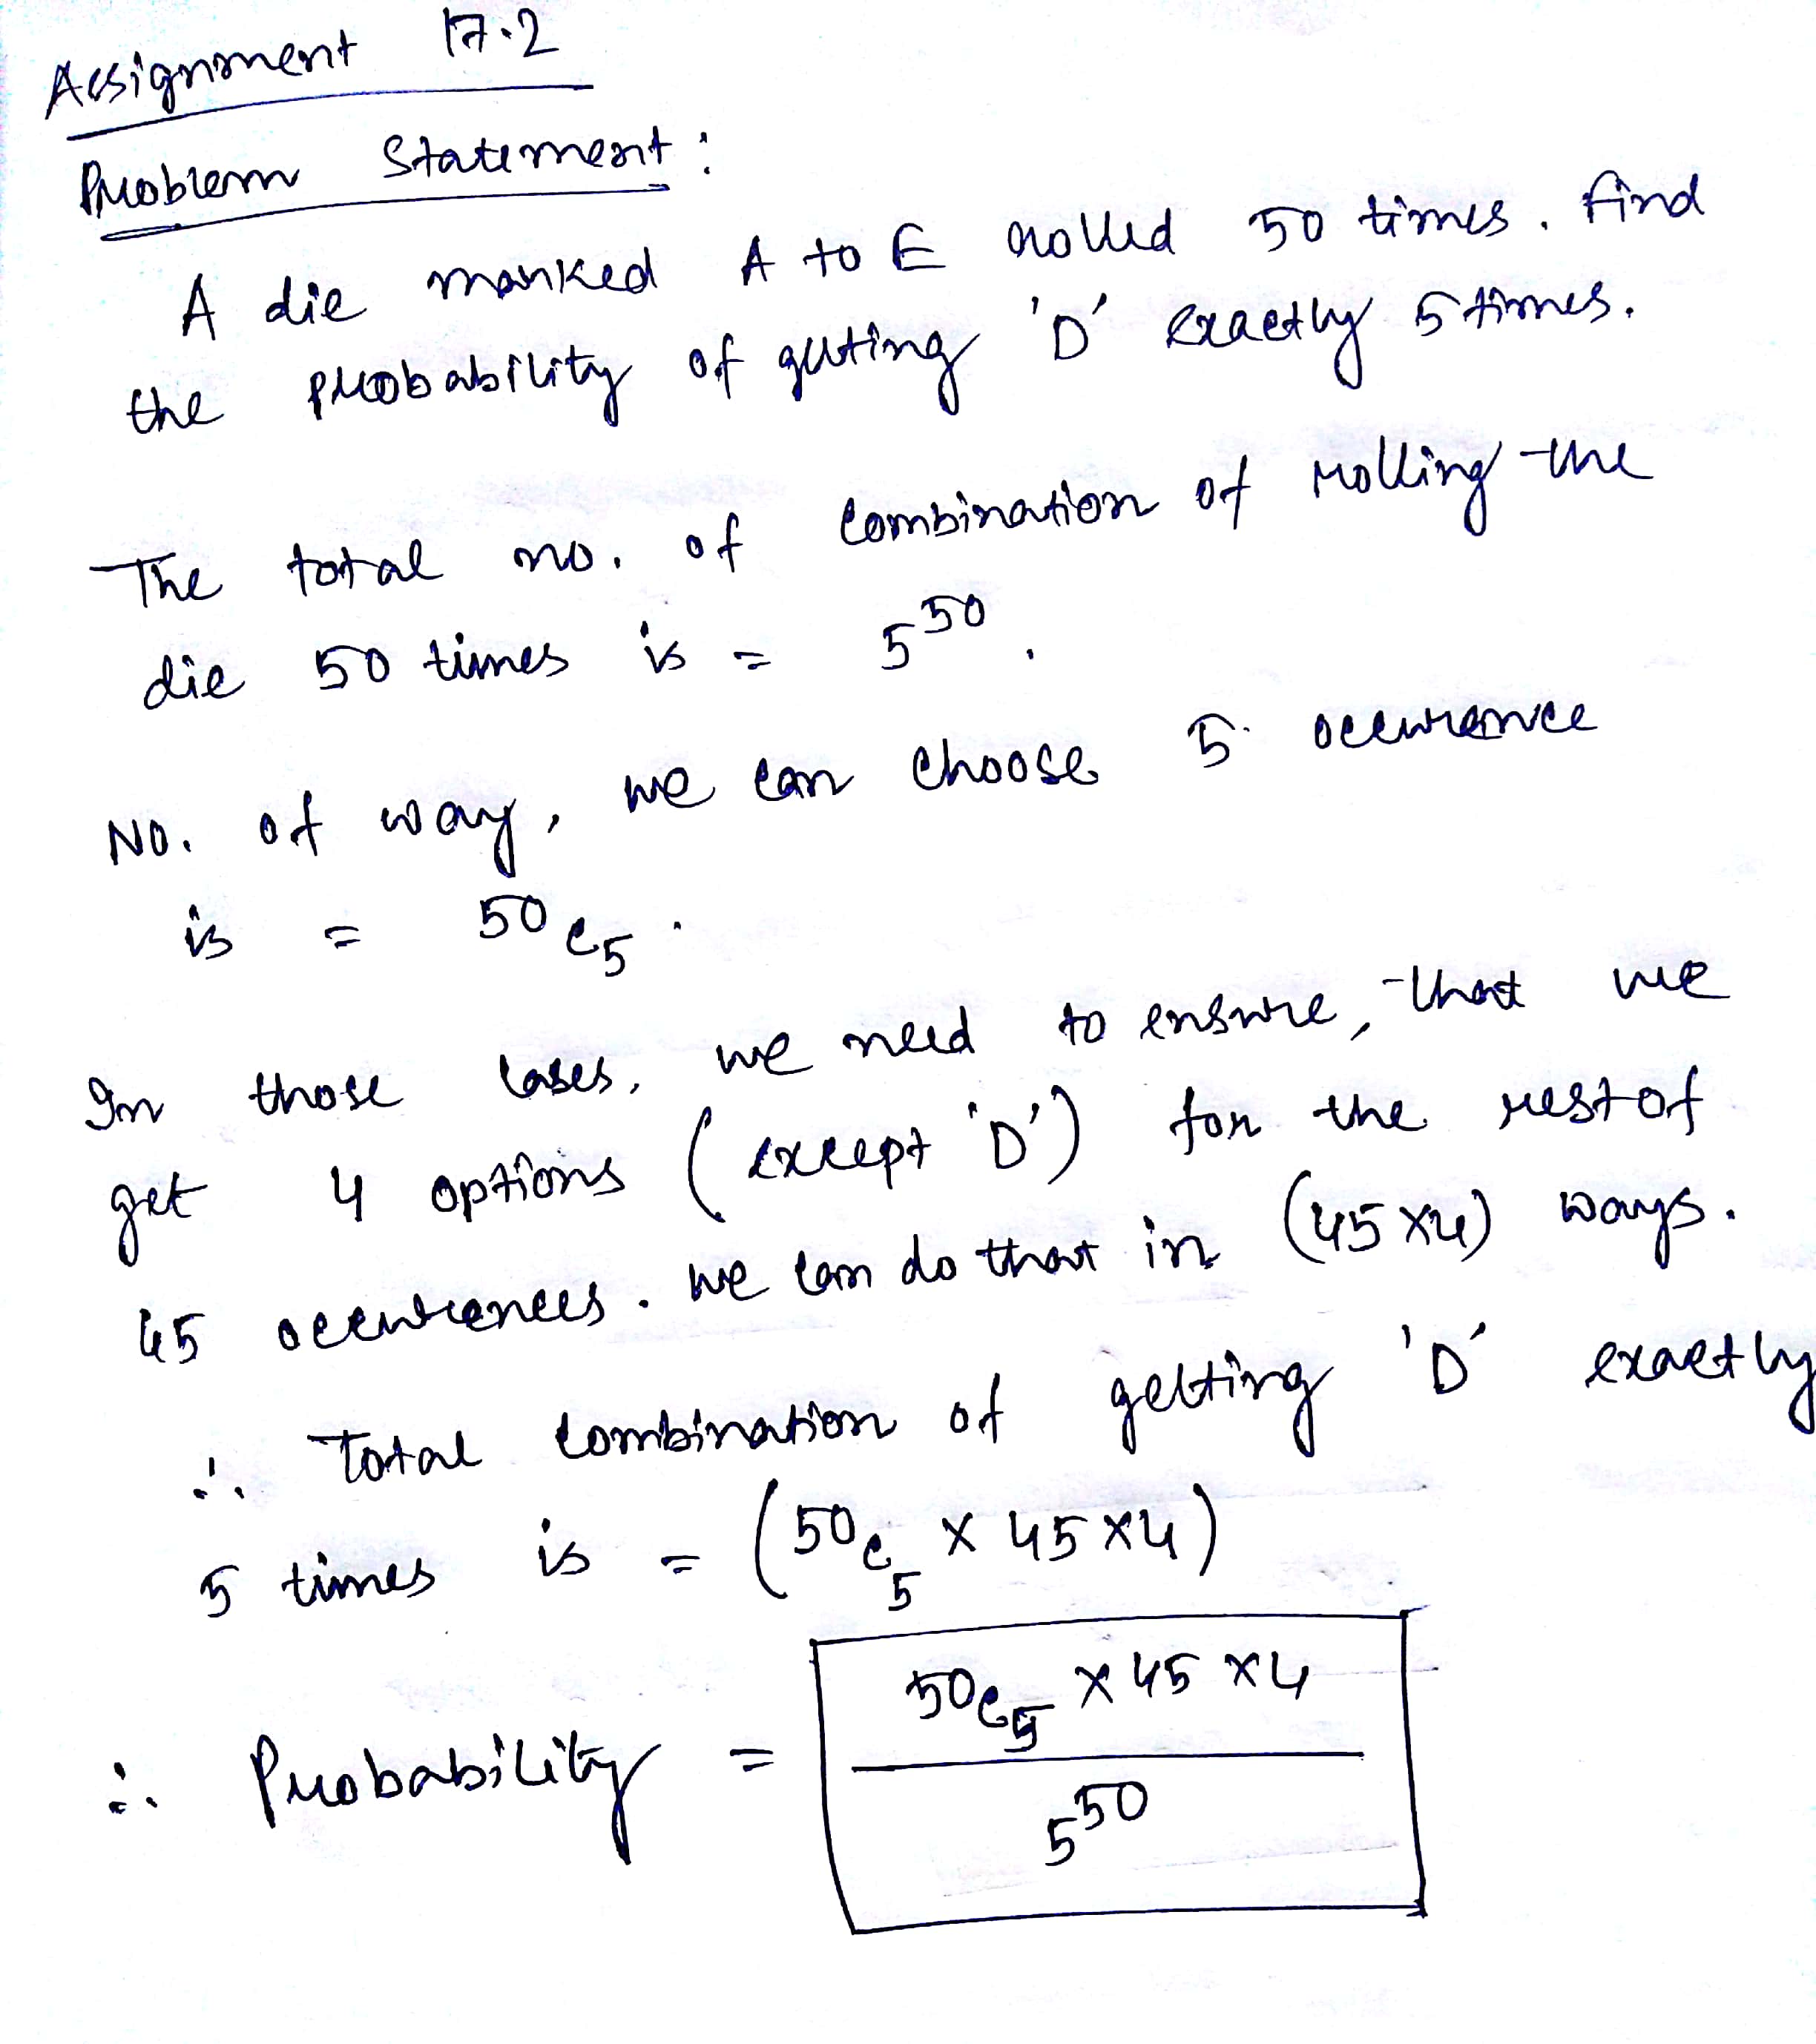 Assignment 17.2
Problem Statement:
A die marked A to E rolled 50 times. find
the probability of getting 'D' exactly 5 times.
The total no. of combination of rolling the
die 50 times is = 5⁵⁰.
No. of way, we can choose 5 occurrence
is = 50c₅.
In those cases, we need to ensure, that we
get 4 options (except 'D') for the rest of
45 occurrences. we can do that in (45 x4) ways.
∴ Total combination of getting 'D' exactly
5 times is = (50c₅ x 45 x4)
50c₅ x 45 x4
∴ Probability =
5⁵⁰